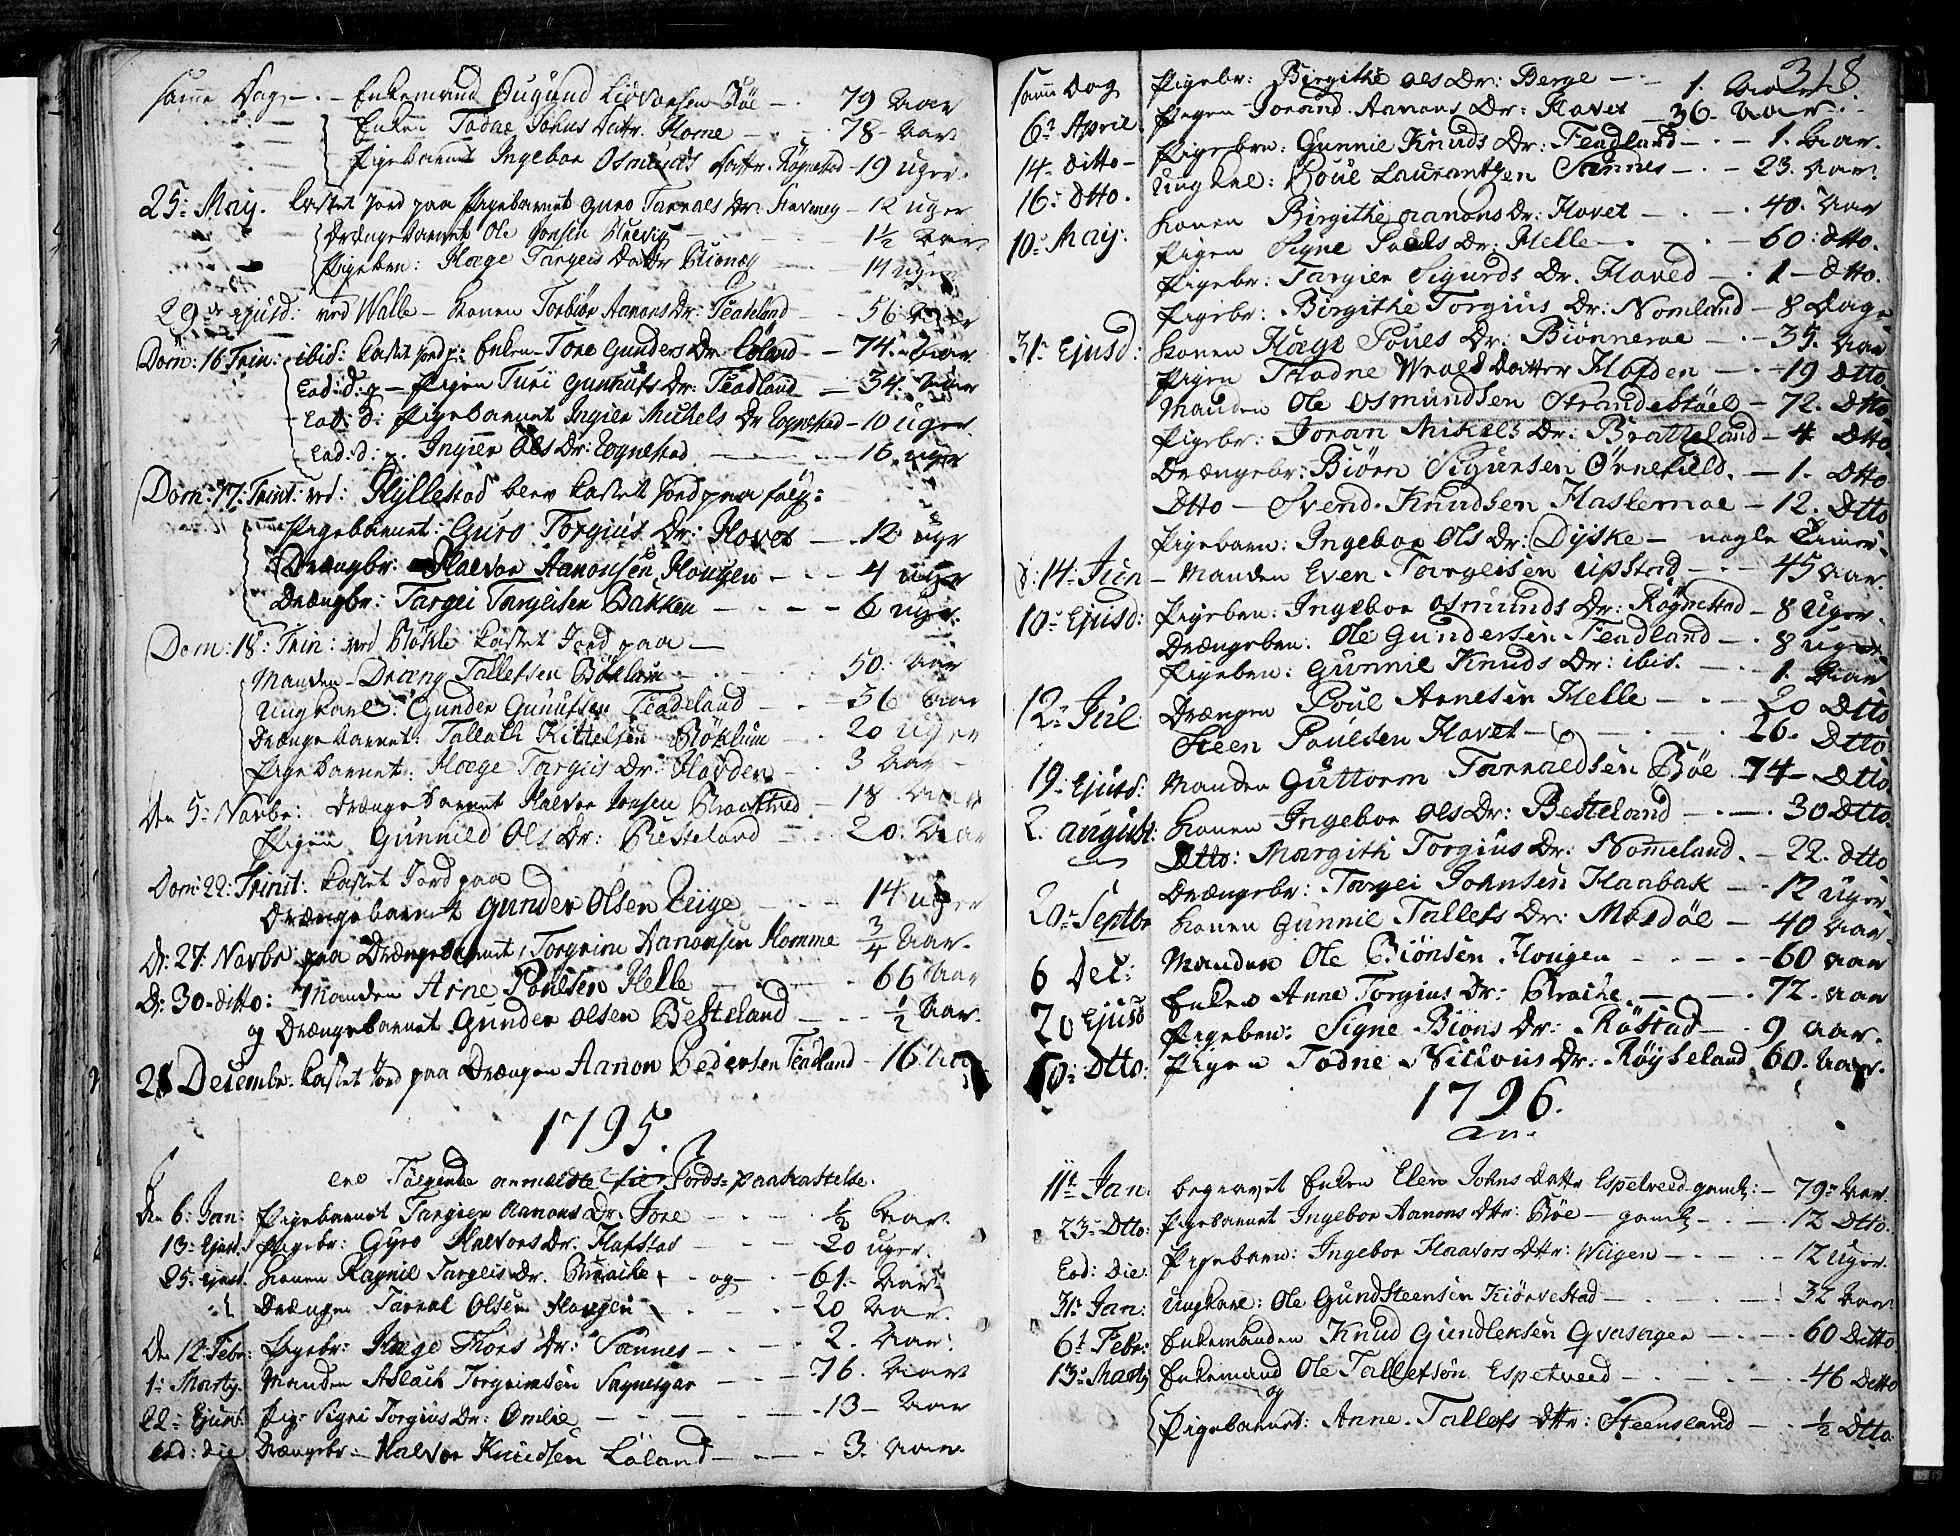 samme Dag - . - Enkemand Ougund Lidvorsen Böe - . 79 Aar
Enken Todne Johns Dattr. Home - . - . 78 - Aar
Pigebarnet Ingebor Osmunds Dattr. Rögnestad - 19 uger.
25: Maj. Kastet Jord paa Pigebarnet Guro Tarvals Dr: - 12 uger
Drængebarnet Ole Jonsen - 1½ Aar
Pigebn: Hæge Targeis Dattr - 14 uger
29de ejusd: ved Walle - Konen Torbiör Aanons Dr: Feadeland - 56 Aar
Dom: 16 Trin: ibid: Kastet Jord p: Enken Tore Gunders Dr Löland - 74. Aar
Ead: d: p - Pigen Turi Gunnufs Dr: Feadland - 34. Aar
Ead: d: Pigebarnet Ingier Michels Dr Rognestad - 10 uger
Ead: d: p. Ingier Ols Dr: Rognestad - 16 uger
Dom: 17: Trint: ved: Hyllestad blev kastet Jord paa følg:
Pigebarnet: Guro Torgius Dr: Hovet - 12 ugr
Drængbr: Halvor Aanonsen Hougen - . - 4 uger
Drængbr: Targei Targeisen Bakken - . - . - 6 uger.
Dom: 18: Trin: ved Bökle kastet Jord paa -
Manden - Dreng Tallefsen Böklum - 50: Aar
Ungkarl: Gunder Gunufsen Feadeland - 36 Aar
Drængebarnet: Tallach Kittelsen Böklum - . 20 Uger
Pigebarnet: Hæge Targeis Dr: Hovden - . 3 Aar -
den 5: Novbr: Drængebarnet Halvor Jonsen - 18 Aar
Pigen Gunnild Ols Dr: Besteland - 20. Aar
Dom: 22: Trinit: kastet Jord paa
Drængebarnet Gunder Olsen Riige - 14 uger
D: 27. Novbr paa Drængebarnet Torgrim Aanonsen Homme ¾ Aar.
D: 30 - ditto: Manden Arne Poulsen Helle - . 66 Aar
og Drængebarnet Gunder Olsen Besteland - . - ½ Aar.
21 Decembr. kastet Jord paa Drængen Aanon Pedersen Feadland - 16
1795.
ere Følgende anmeldte til Jords-paakastelse.
Den 6: Jan: Pigebarnet Targier Aanons Dr. Jore - - - ½ Aar.
13: Ejusd. Pigebr: Gyro Halvors Dr. Hafstad - - - 20 uger.
25. Ejusd. Konen Ragnil Targeis Dr. - og - . - 61. - Aar
Drængen Tarval Olsen Hougen - . - . - 20 Aar.
Den 12. Febr: Pigebr: Hæge Thors Dr: Sannes - . - . 2. Aar:
1: Marty. Manden Aslach Torgrimsen Sagnesgar - - - 76. Aar
22 - Ejusd. Pig: Signi Torgius Dr: Omlie - - - - . - 13 - Aar
ead: die Drængebr: - Halvor Knudsen Löland - - - 3. Aar.
318
samme Dag Pigebr: Birgithe Ols Dr: Berge - . - 1. Aar
6: April Pigen Jorand Aanons Dr: Hovet - 36 - Aar
14. Ditto - Pigebrn: Gunnil Knuds Dr: Feadland - . - 1. Aar.
16: Dtto. Ungkrl: Poul Laurantzen Sannes - . - 23. Aar.
Konen Birgithe Aanons Dr: Hovet - . - 40. Aar
10: Maj: Pigen Signe Pouls Dr: Helle - . - 60: Dtto.
Pigebr: Targier Sigurds Dr. Hoved - . 1 - Dtto.
Pigebr: Birgithe Torgius Dr: Nomland - 8 Dage
31: Ejusd: Konen Hæge Pouls Dr: Biönneroe - . - 35. Aar
Pigen Hadne Wrals Datter Holden - . - 19 Dtto
Manden Ole Osmundsen Strandestöel - 72. Dtto
Pigebr: Joran Mikels Dr: Bratteland - 4 Dtto
Drængebr: Biörn Sigursen Örnefield. - 1. Dtto
Dtto - Svend Knudsen Haslemoe - 12. Dtto
Pigebarn: Ingebor Ols Dr: Dyske - nogle Timer.
14: Jun - Manden Even Targeisen Upstad - . - 45 Aar.
10: Ejusd: Pigebn: Ingebor Osmunds Dr: Rögnestad - 8 Uger.
Drængebn: Ole Gundersen Feadland - . 8 uger.
Pigebn: Gunnil Knuds Dr: ibid. - . - 1. Aar
12: Jul: Drængen Poul Arnesen Helle - . - 20 Dtto
Steen Poulsen Hovet - . - . 26. Dtto
19: Ejusd: Manden Guttorm Tarvaldsen Böe 74 - Dtto
2. August: Konen Ingebor Ols Dr: Besteland - . - . 30 Dtto.
Dtto: Margith Torgius Dr: Nomeland. - 22. Dtto
Drængebr: Targei Johnsen Haabak - . 12 uger.
20: Septbr Konen Gunnil Tallefs Dr: - 40 Aar
6 Det: Manden Ole Biönsen Hougen - . - . - 60 Aar
20 Ejusd Enken Anne Torgius Dr: - . 72. Aar
Pigebrn: Signe Biöns Dr: Röstad - . 9 Aar.
Dtto: Pigen Todne Dr: Röyseland 60. Aar.
1796.
an.
11t: Jan: begravet Enken Elen Johns Dattr Espetveed gaml: - 79 - Aar.
23: Dtto: Pigebarnet Ingebor Aanons Dttr: Böe - gaml - . - . 12 Dtto.
Ead: Die: Pigebarn: Ingebor Haavors Dttr: Wiigen - . - . 12 Uger.
31t: Jan: Ungkarl: Ole Gundsteensen Kiörvestad - . 32 Aar.
6t: Febr: Enkemanden Knud Gundleksen Qvasager - . - . 60 Ditto
13: Marty Enkemand Ole Tallefsön Espetveed - . . - . . 46 Ditto
og
Pigebarnet: Anne Tallefs Dttr: Steensland - . - . ½ Dtto.